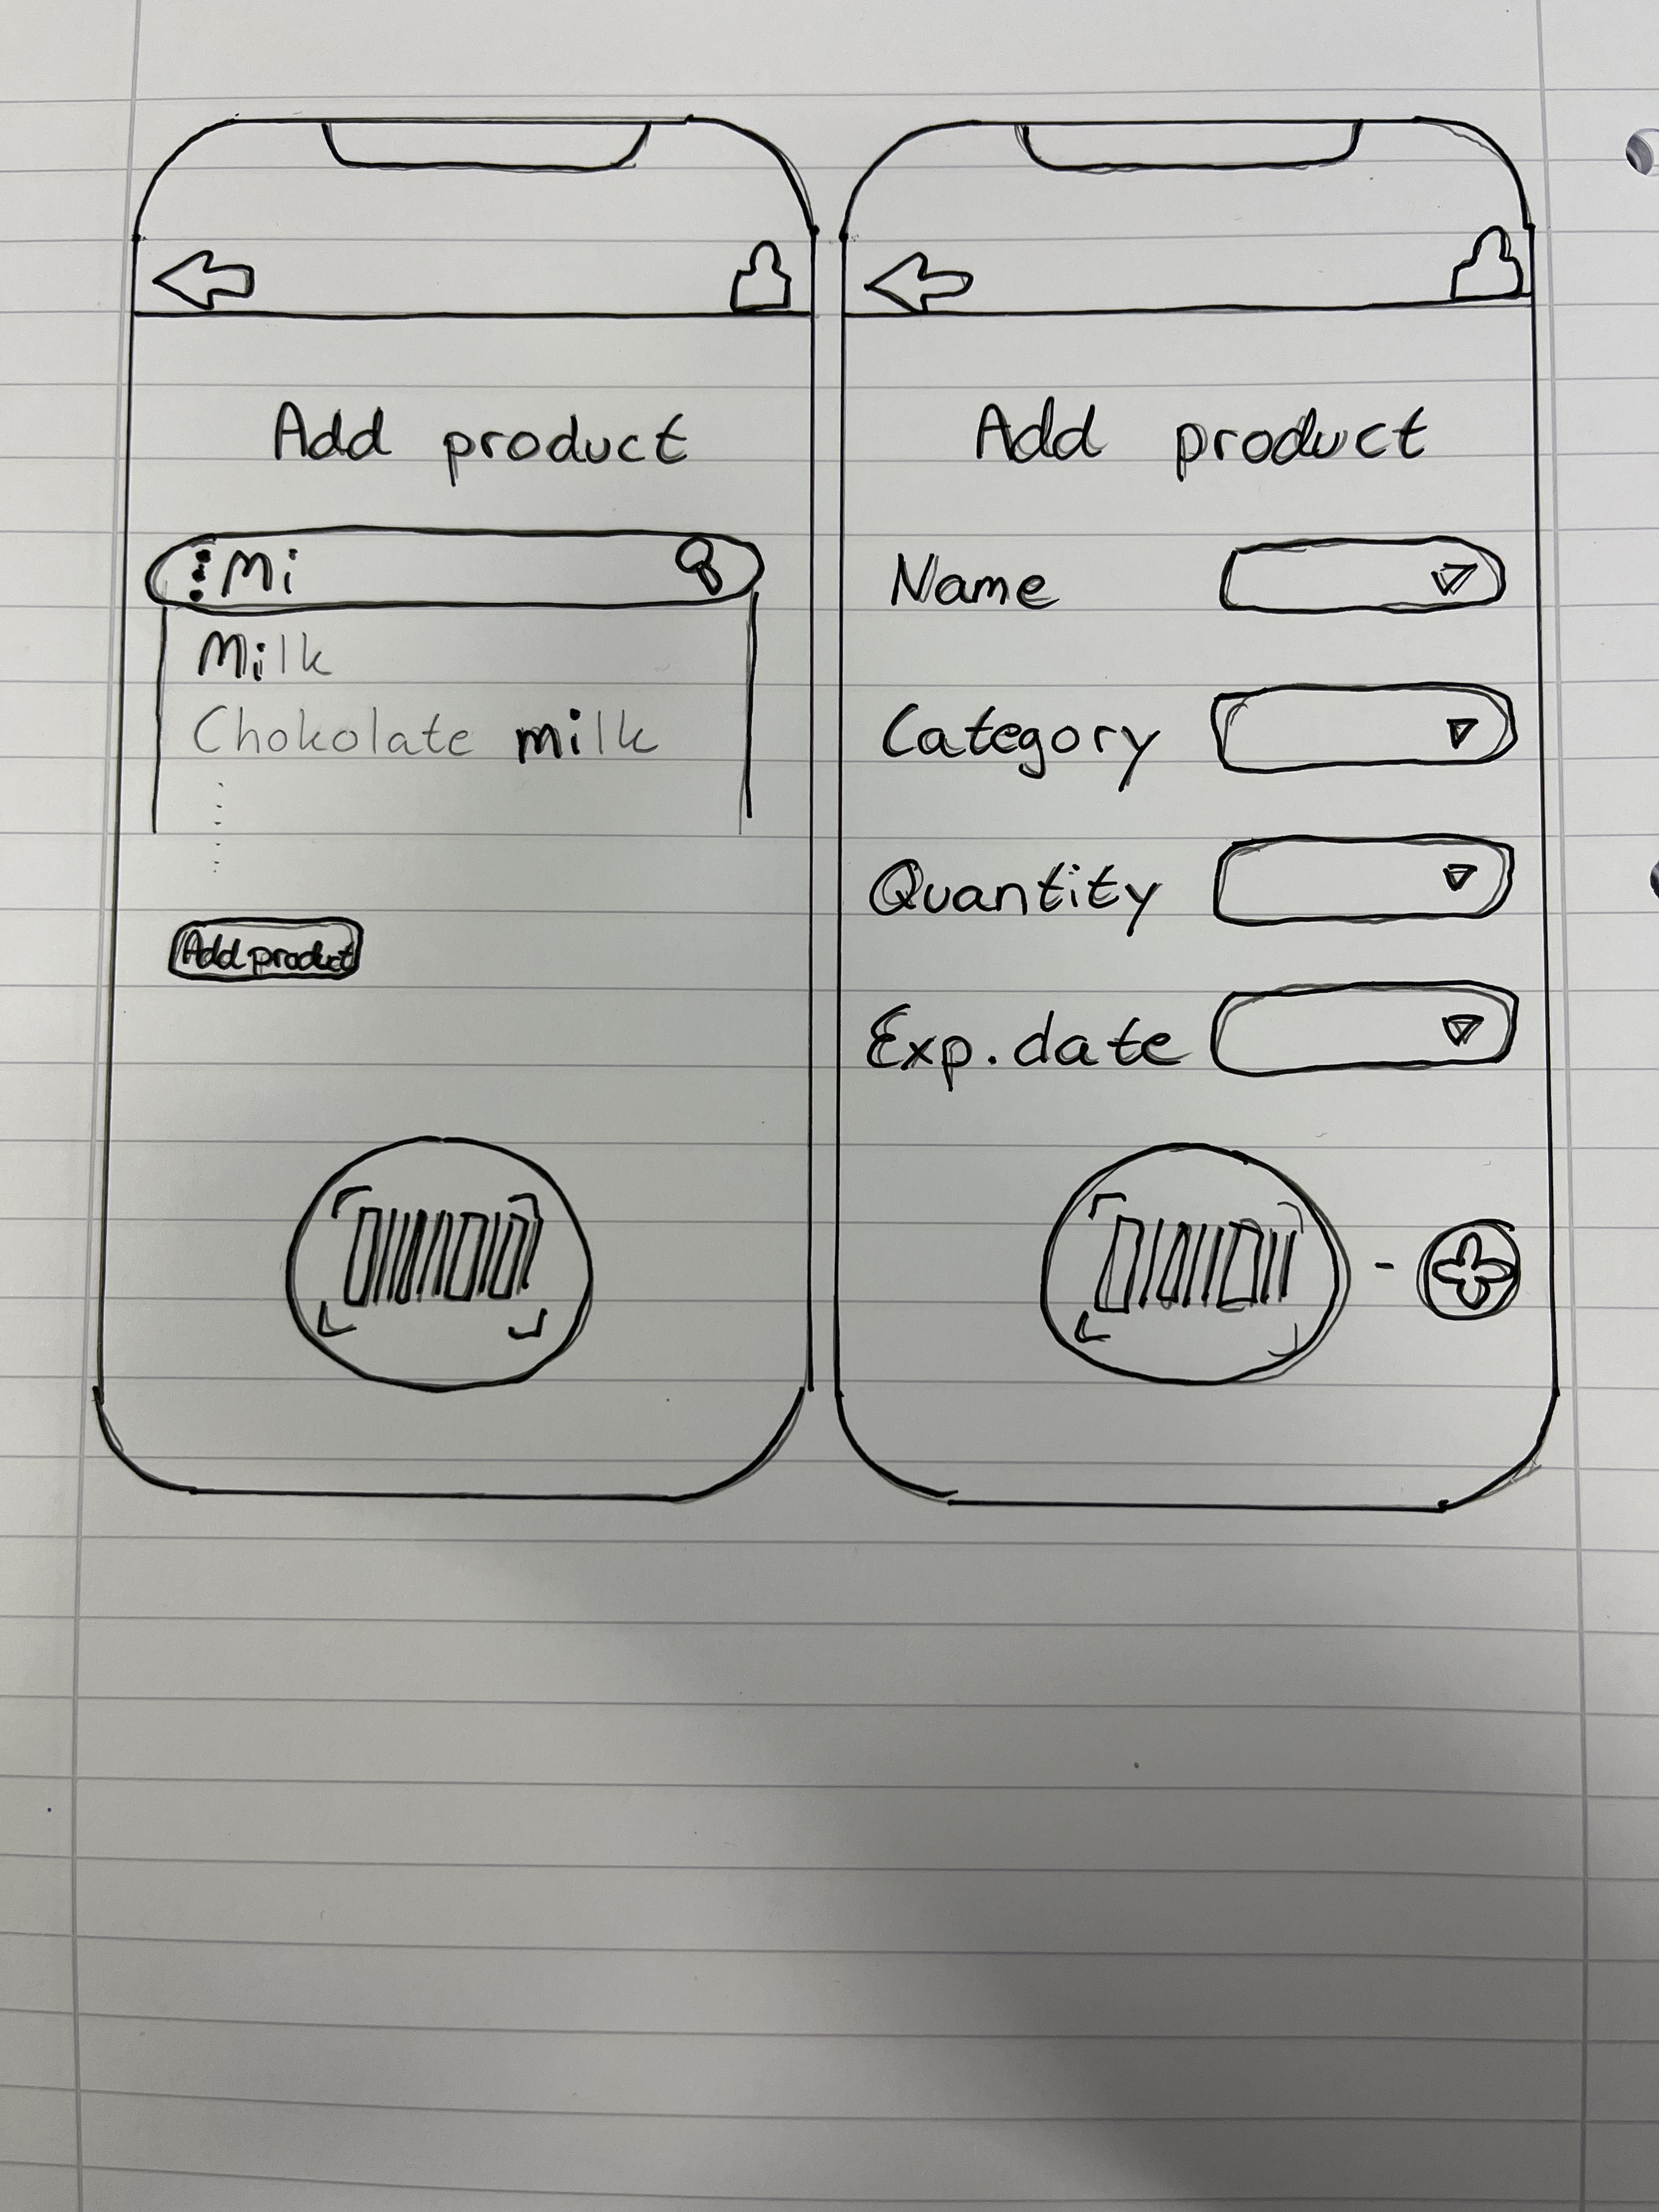 Add product
Mi
Milk
Chokolate milk
Add product
Add product
Name
Category
Quantity
Exp.date